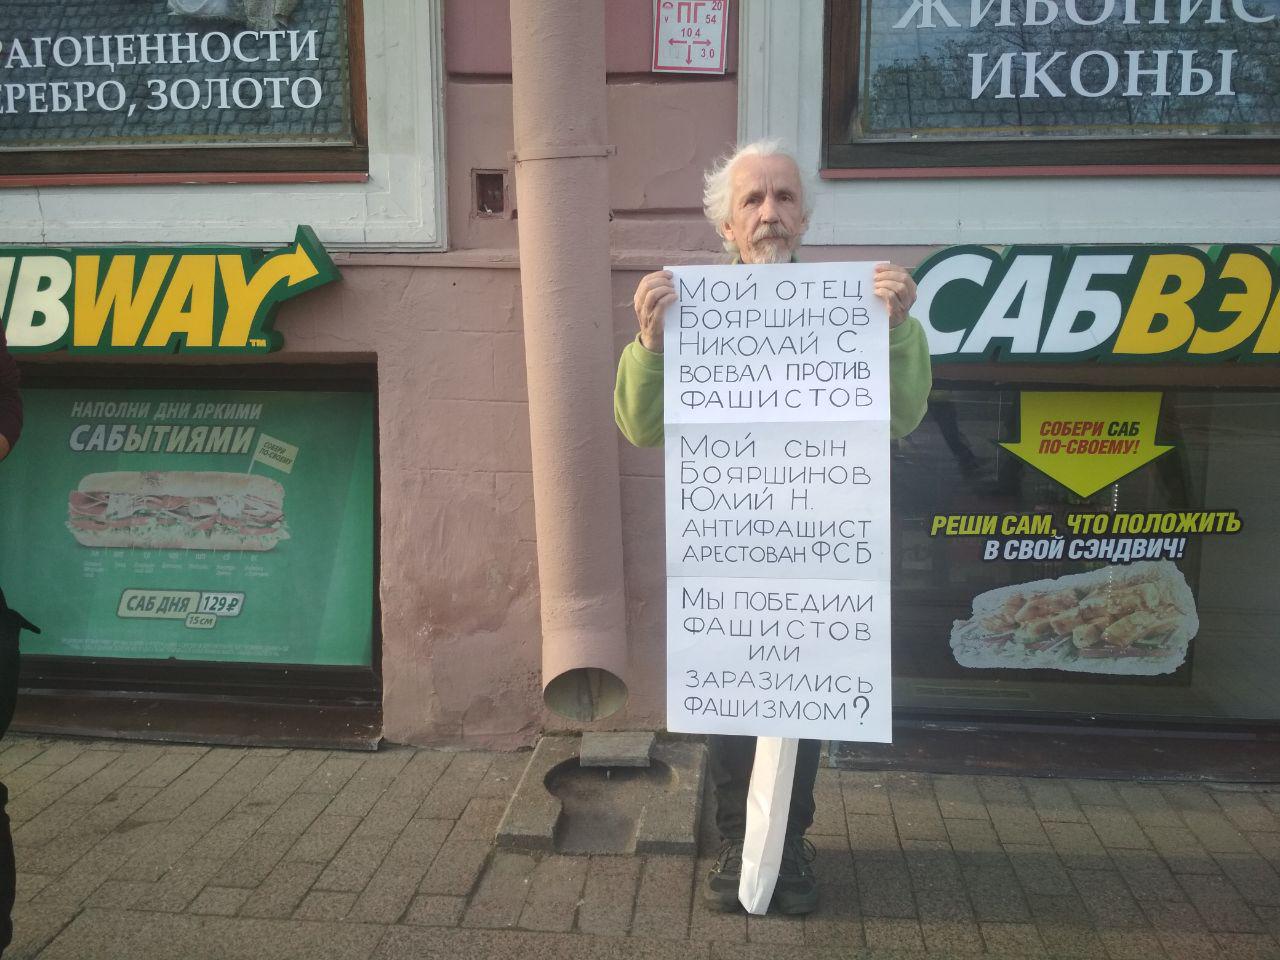 РАГОЦЕННОСТИ
ЕРЕБРО, ЗОЛОТО
ПГ 20
V 54
104
3,0
ЖИВОПИС
ИКОНЫ
UBWAY™
САБВЭ
НАПОЛНИ ДНИ ЯРКИМИ
САБЫТИЯМИ
СОБЕРИ
ПО-СВОЕМУ
САБ ДНЯ 129₽
15 СМ
МОЙ ОТЕЦ
БОЯРШИНОВ
НИКОЛАЙ С.
ВОЕВАЛ ПРОТИВ
ФАШИСТОВ
МОЙ СЫН
БОЯРШИНОВ
ЮЛИЙ Н.
АНТИФАШИСТ
АРЕСТОВАН ФСБ
МЫ ПОБЕДИЛИ
ФАШИСТОВ
ИЛИ
ЗАРАЗИЛИСЬ
ФАШИЗМОМ?
СОБЕРИ САБ
ПО-СВОЕМУ!
РЕШИ САМ, ЧТО ПОЛОЖИТЬ
В СВОЙ СЭНДВИЧ!